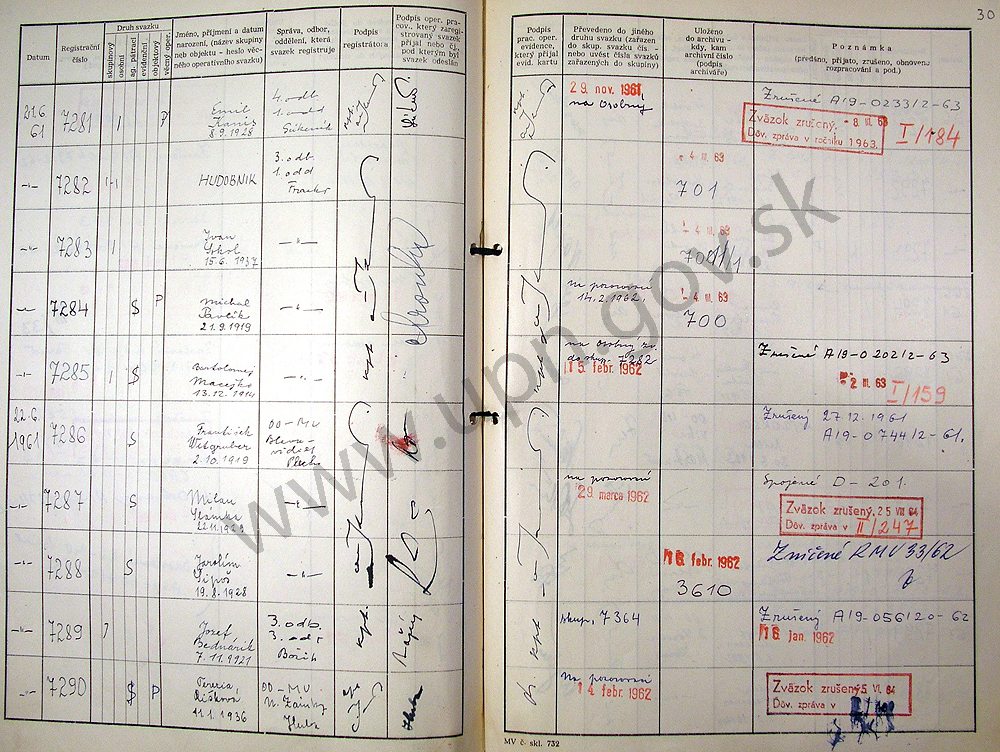 30
Datum
Registrační číslo
Druh svazku
skupinový
osobní
ag. pátrací
evidenční
objektový
věcný oper.
Jméno, příjmení a datum
narození, (název skupiny
neb objektu - heslo věc-
ného operativního svazku)
Správa, odbor,
oddělení, která
svazek registruje
Podpis
registrátora
Podpis oper. pra-
cov. který zaregi-
strovaný svazek
přijal nebo čj.,
pod kterým byl
svazek odeslán
Podpis
prac. oper.
evidence,
který přijal
evid. kartu
Převedeno do jiného
druhu svazku (zařazen
do skup. svazku čís. -
nebo uvést čísla svazků
zařazených do skupiny)
Uloženo
do archivu -
kdy, kam
archivní číslo
(podpis
archiváře)
Poznámka
(předáno, přijato, zrušeno, obnoveno
rozpracování a pod.)
21.6
61
7281
P
Emil
Kanis
8.9.1928
4. odb
1. odd
29 nov. 1961
na Osobný
Zrušené A/9-0233/2-63
Zväzok zrušený - 8. III. 63
Dôv. zpráva v ročníku 1963.
I/184
-"- 7282
HUDOBNIK
3. odb.
1. odd
Franko
- 4 III. 63
701
-"- 7283
Ivan
Sokol
15.6.1937
-"-
- 4 III. 63
701/1
-"- 7284 S P
Michal
Pavlík
21.9.1919
-"-
na pozorovní
14.2.1962
- 4 III. 63
700
-"- 7285 S
Bartolomej
Macejko
13.12.1914
-"-
na Osobný zv.
do skup. 7282
15. febr. 1962
Zrušené A/9-0202/2-63
- 2 III. 63
I/159
22.6.
1961
7286 S
František
Witgruber
2.10.1919
OO-MV
Zrušený 27.12.1961
A/9-0744/2-61.
-"- 7287 S
Milan
22.11.1929
-"-
na pozorovní
29. marca 1962
Spojené D-201.
Zväzok zrušený. 25 VIII 64
Dôv. zpráva v II/247
-"- 7288 S
Jarolím
Sipoš
19.8.1928
-"-
16. febr. 1962
3610
Zničené RMV 33/62
-"- 7289
Jozef
Bednárik
7.11.1921
3. odb.
3. odd
skup. 7364
Zrušený A/9-056120-62
16 jan. 1962
-"- 7290 S P
Terézia
11.1.1936
OO-MV
N. Zámky
Huba
Na pozorovní
14 febr. 1962
Zväzok zrušený 5. VI. 64
Dôv. zpráva v
MV č. skl. 732
www.upn.gov.sk